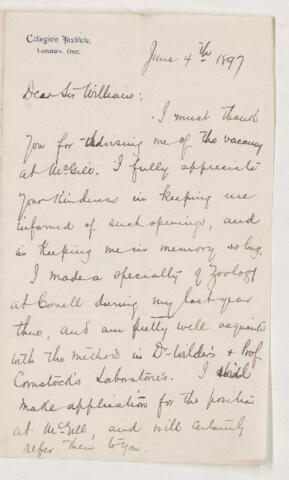 Collegiate Institute,
London, Ont.
June 4th 1897
Dear Sir William:
I must thank
you for advising me of the vacancy
at McGill. I fully appreciate
your kindness in keeping me
informed of such openings, and
in keeping me in memory so long.
I made a specialty of Zoology
at Cornell during my last year
there, and am pretty well acquainted
with the method in Dr. Wilder's & Prof
Comstock's Laboratories. I shall
make application for the position
at McGill, and will certainly
refer them to you.